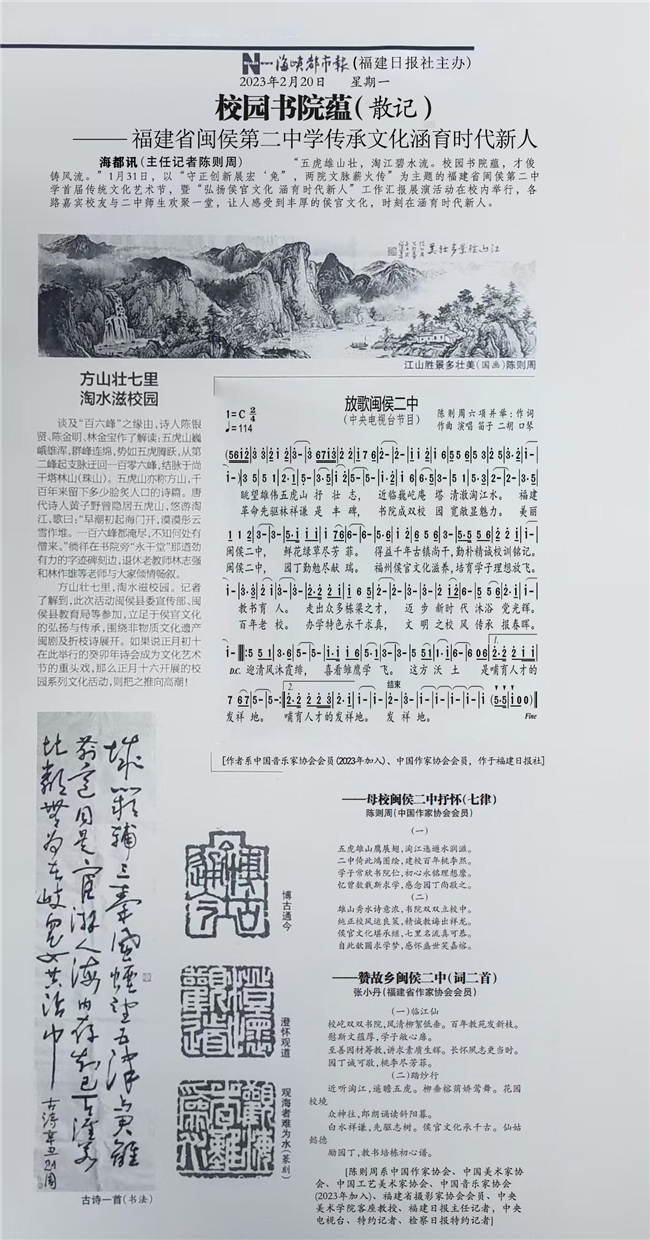 海峡都市报(福建日报社主办)
2023年2月20日 星期一
校园书院蕴(散记)
——福建省闽侯第二中学传承文化涵育时代新人
海都讯(主任记者陈则周) “五虎雄山壮，淘江碧水流。校园书院蕴，才俊
铸风流。”1月31日，以“守正创新展宏‘兔’，两院文脉薪火传”为主题的福建省闽侯第二中
学首届传统文化艺术节，暨“弘扬侯官文化 涵育时代新人”工作汇报展演活动在校内举行，各
路嘉宾校友与二中师生欢聚一堂，让人感受到丰厚的侯官文化，时刻在涵育时代新人。
江山胜景多壮美
江山胜景多壮美(国画)陈则周
方山壮七里
淘水滋校园
谈及“百六峰”之缘由，诗人陈银
贤、陈金明、林金宝作了解读：五虎山巍
峨雄浑，群峰连绵，势如五虎腾跃，从第
二峰起支脉迂回一百零六峰，结脉于尚
干塔林山(珠山)。五虎山亦称方山，千
百年来留下多少脍炙人口的诗篇。唐
代诗人黄子野曾隐居五虎山，悠游淘
江，歌曰：“早潮初起海门开，漠漠彤云
雪作堆。一百六峰都淹尽，不知何处有
僧来。”徜徉在书院旁“永千堂”那道劲
有力的字迹碑刻边，退休老教师林志强
和林作雄等老师与大家倾情畅叙。
方山壮七里，淘水滋校园。记者
了解到，此次活动闽侯县委宣传部、闽
侯县教育局等参加，立足于侯官文化
的弘扬与传承，围绕非物质文化遗产
闽剧及折枝诗展开。如果说正月初十
在此举行的癸卯年诗会成为文化艺术
节的重头戏，那么正月十六开展的校
园系列文化活动，则把之推向高潮！
放歌闽侯二中
(中央电视台节目)
1=C 2/4
♩=114
陈则周六项并举：作词
作曲 演唱 笛子 二胡 口琴
眺望雄伟五虎山 抒 壮 志， 近临巍屹庵 塔 清澈淘江水。 福建
革命先驱林祥谦 是 丰 碑， 书院成双校 园 宽敞显魅力。 美丽
闽侯二中， 鲜花绿草尽芳 菲。 得益千年古镇尚干，勤朴精诚校训铭记。
闽侯二中， 园丁勤勉尽献 瑞。 福州侯官文化滋养，培育学子理想放飞。
教书育 人。 走出众多栋梁之才， 迈 步 新时 代 沐浴 党光辉。
百年老 校。 办学特色永干求真， 文 明 之校 风 传承 报春晖。
D.C. 迎清风沐霞绯， 喜看雏鹰学 飞。 这方 沃 土 是哺育人才的
结束
发祥 地。 哺育人才的发祥地。 发 祥 地。
Fine
[作者系中国音乐家协会会员(2023年加入)、中国作家协会会员，作于福建日报社]
——母校闽侯二中抒怀(七律)
陈则周(中国作家协会会员)
(一)
五虎雄山鹰展翅，淘江迤逦水润滋。
二中倚此鸿图绘，建校百年桃李熙。
学子常欣书院伫，初心永铭理想麾。
忆曾数载斯求学，感念园丁尚敬之。
(二)
雄山秀水诗意浓，书院双双立校中。
纯正校风运良策，精诚教诲出祥龙。
侯官文化堪承继，七里名流真可恭。
自此欲圆求学梦，感怀盛世笑嘉榕。
——赞故乡闽侯二中(词二首)
张小丹(福建省作家协会会员)
(一)临江仙
校屹双双书院，风清柳絮低垂。百年教苑发新枝。
慰斯文蕴厚，学子敞心扉。
至善因材筹教，讲求素质生辉。长怀夙志更当时。
园丁诚可敬，桃李尽芳菲。
(二)踏纱行
近听淘江，遥瞻五虎。柳垂榕荫娇莺舞。花园
校境
众神往，郎朗诵读斜阳暮。
白水祥谦，先驱志树。侯官文化承千古。仙姑
懿德
励园丁，教书培栋初心谱。
[陈则周系中国作家协会、中国美术家协
会、中国工艺美术家协会、中国音乐家协会
(2023年加入)、福建省摄影家协会会员、中央
美术学院客座教授、福建日报主任记者，中央
电视台、特约记者、检察日报特约记者]
城阙辅三秦风烟望五津与君离
别意同是宦游人海内存知己天涯若
比邻无为在歧路儿女共沾巾
古诗一首(书法)
博古通今
博古通今
澄怀观道
澄怀观道
观海者难为水
观海者难为水(篆刻)